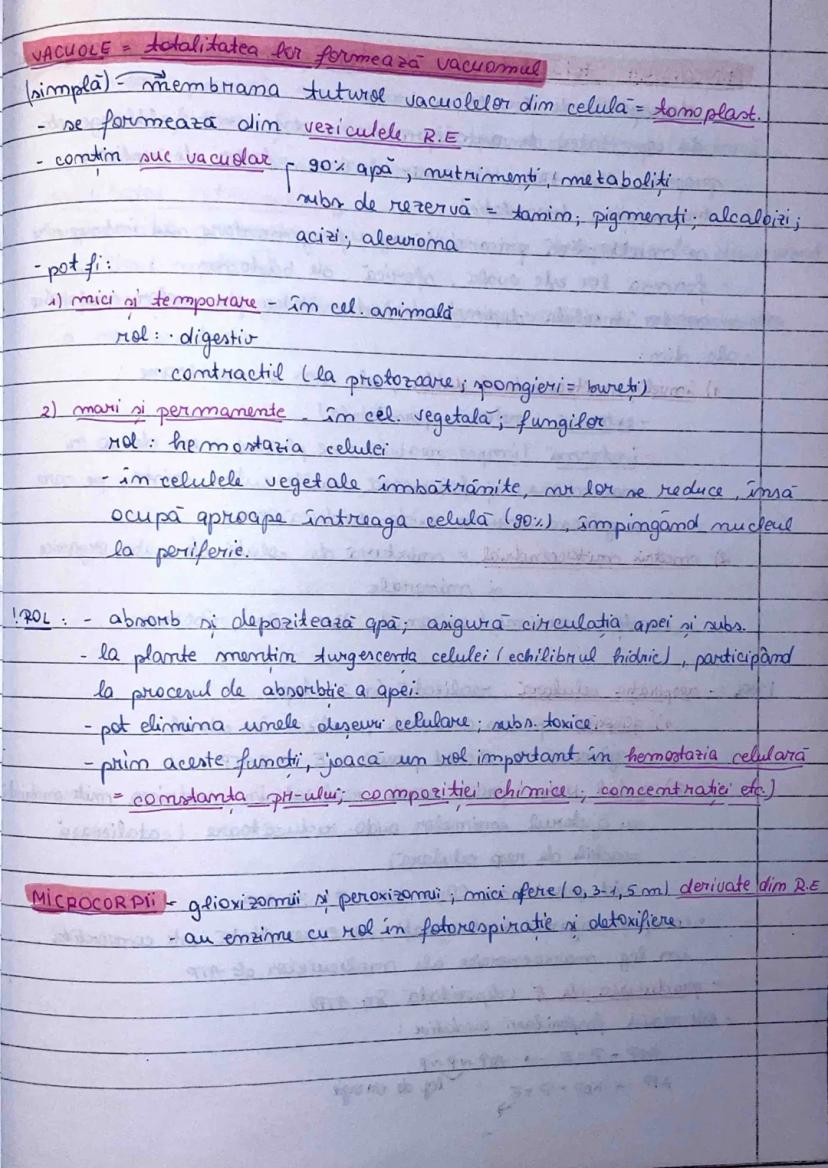 VACUOLE = totalitatea lor formează vacuomul
(simplă) - membrana tuturol vacuolelor din celulă = tonoplast.
- se formează din veziculele R.E
- conțin suc vacuolar - 90% apă; nutrimenți; metaboliți
subs de rezervă = tanin; pigmenți; alcaloizi;
acizi; aleurona
- pot fi:
1) mici și temporare - în cel. animală
rol: · digestiv
· contractil (la protozoare; spongieri = bureți)
2) mari și permanente - în cel. vegetală; fungilor
rol: hemostazia celulei
- în celulele vegetale îmbătrânite, nr lor se reduce, însă
ocupă aproape întreaga celulă (90%), împingând nucleul
la periferie.
!ROL: - absorb și depozitează apă; asigură circulația apei și subs.
- la plante mențin turgescența celulei (echilibrul hidric), participând
la procesul de absorbție a apei.
- pot elimina unele deșeuri celulare; subs. toxice.
- prin aceste funcții, joacă un rol important în hemostazia celulară
= constanța pH-ului; compoziției chimice; concentrației etc.)
MICROCORPII - glioxizomii și peroxizomii; mici sfere (0,3-1,5 m) derivate din R.E
- au enzime cu rol în fotorespirație și detoxifiere.